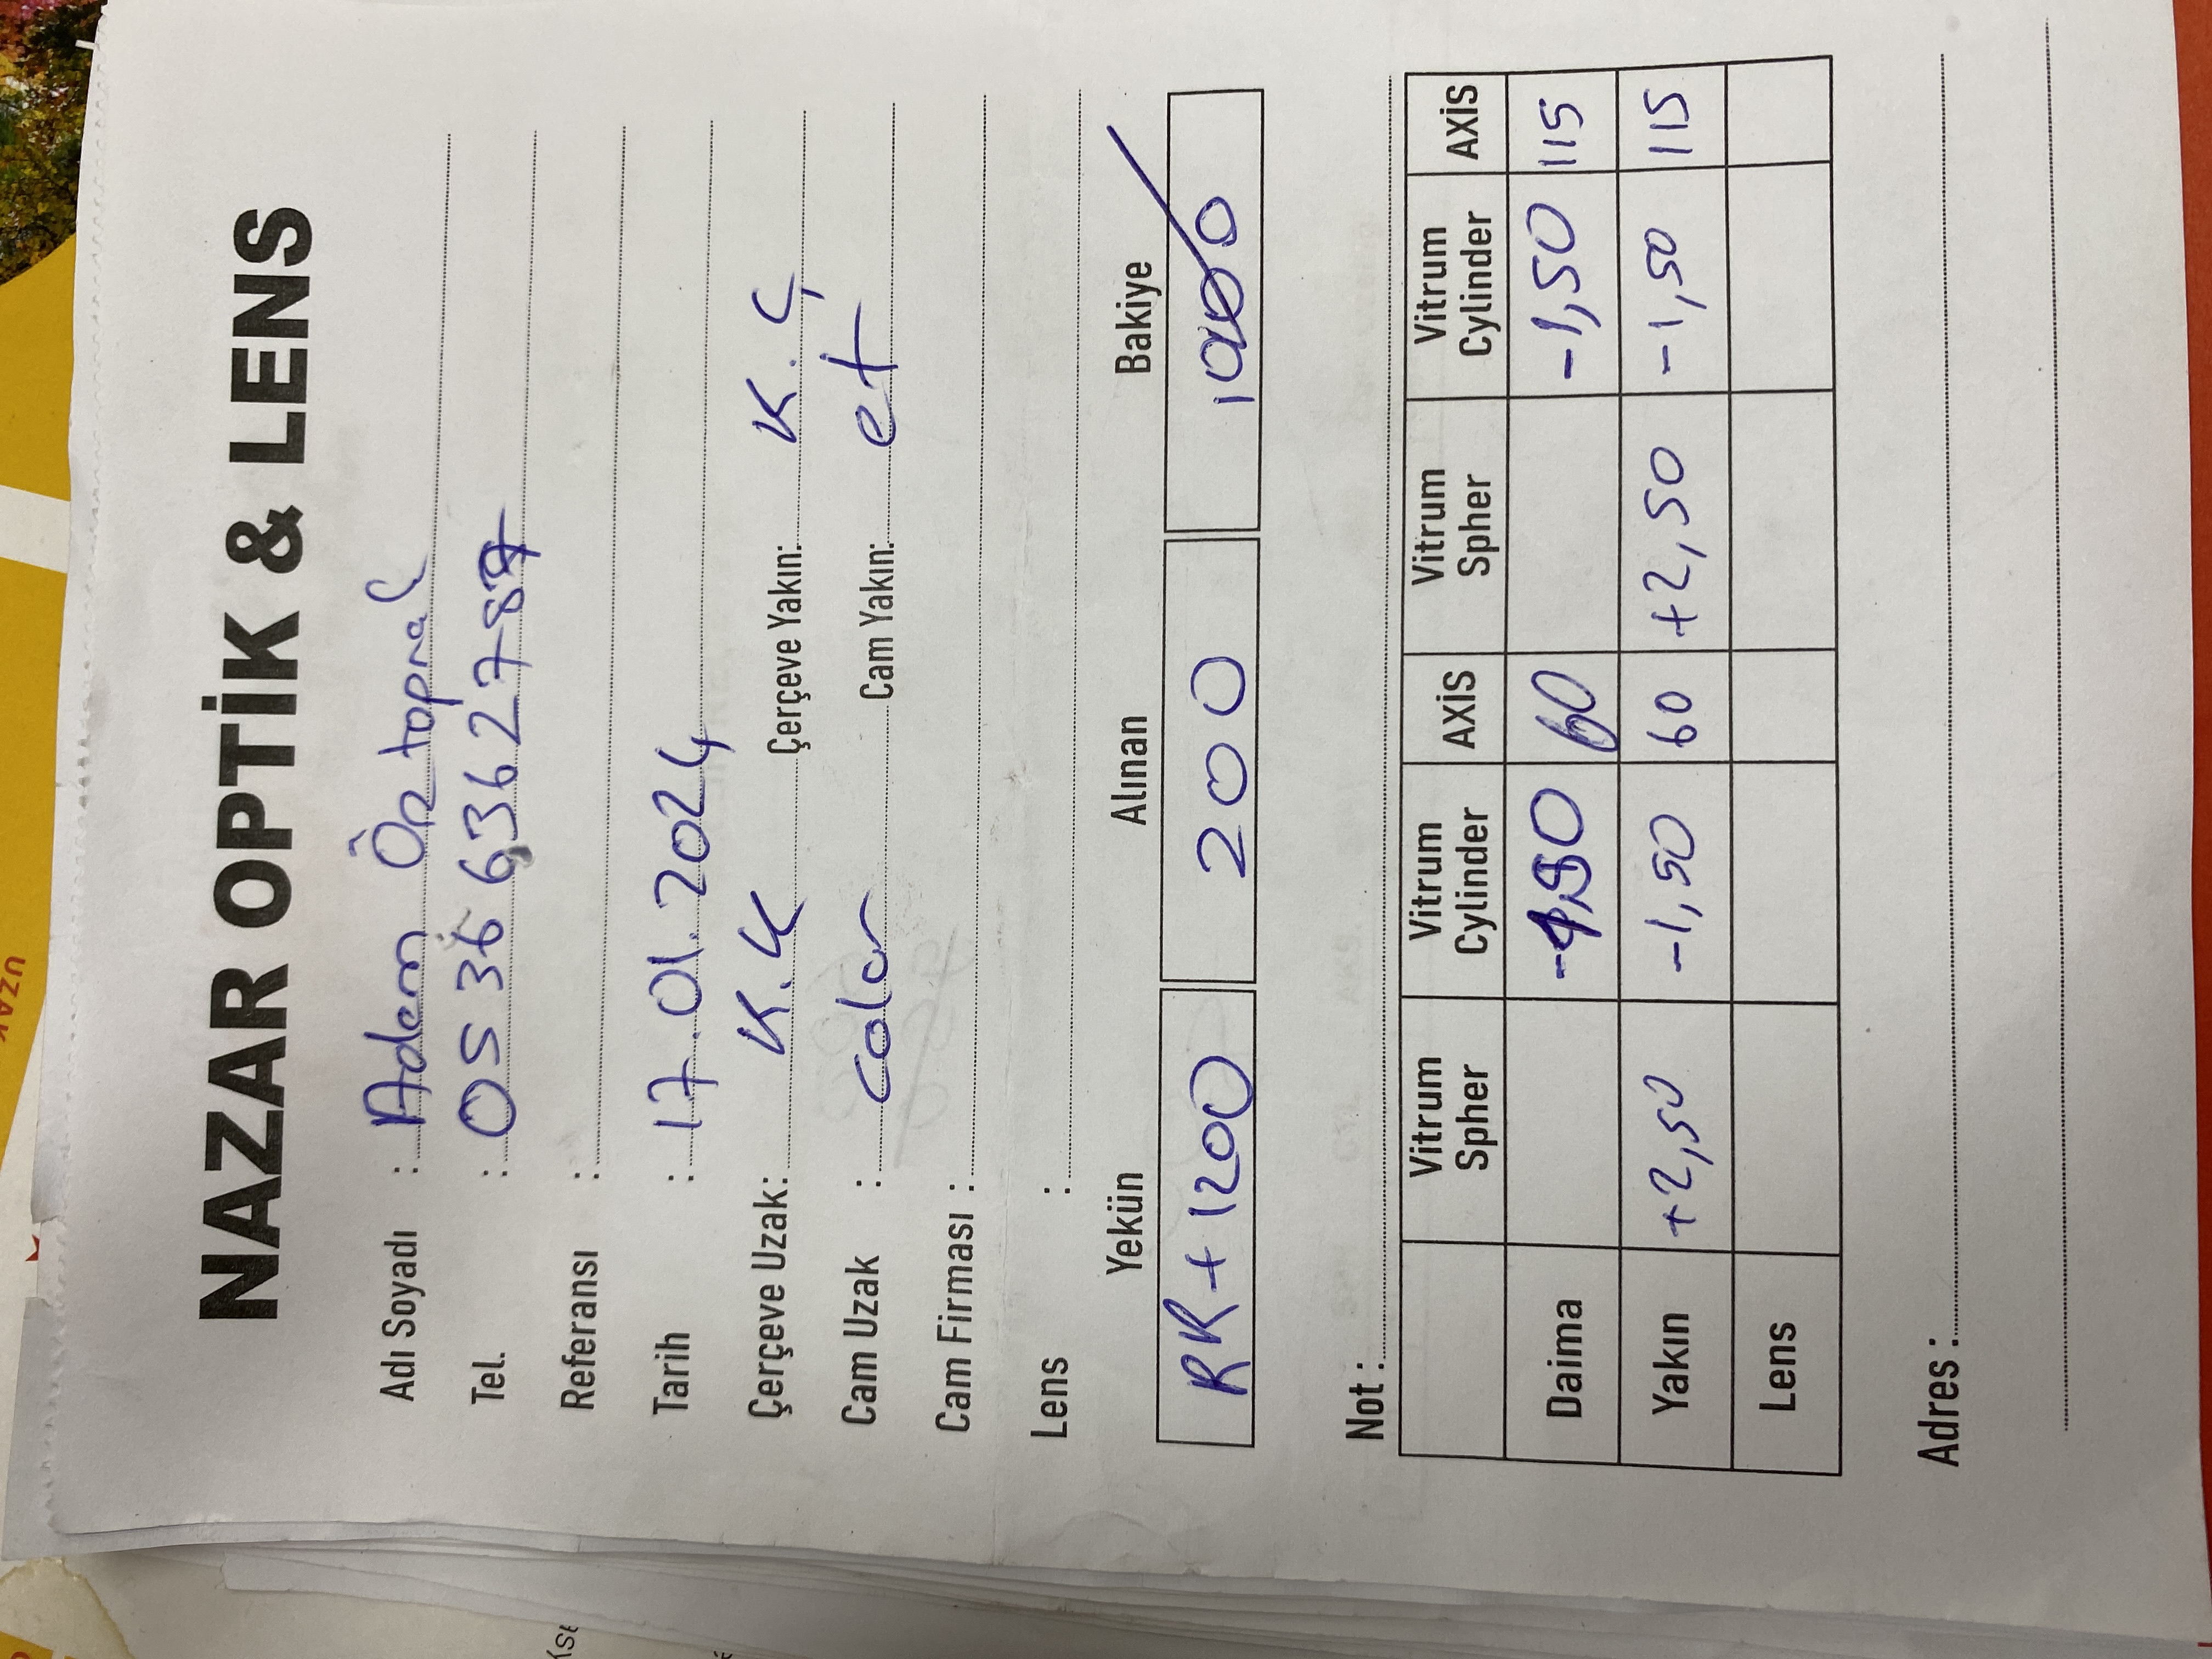 UZAK
NAZAR OPTİK & LENS
Adı Soyadı : Adem Öztoprak
Tel. : 0536 6362787
Referansı :
Tarih : 17.01.2024
Çerçeve Uzak: K.K Çerçeve Yakın: K.Ç
Cam Uzak : color Cam Yakın: et
Cam Firması :
Lens :
Yekün Alınan Bakiye
RR+1200 200 1000
Not :
Vitrum Spher Vitrum Cylinder AXİS Vitrum Spher Vitrum Cylinder AXİS
Daima -1,50 60 -1,50 115
Yakın +2,50 -1,50 60 +2,50 -1,50 115
Lens
Adres :